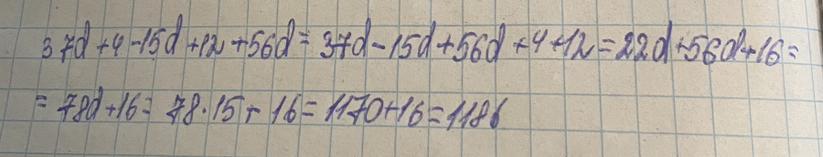 37d+4-15d+12+56d=37d-15d+56d+4+12=22d+56d+16=
=78d+16=78·15+16=1170+16=1186